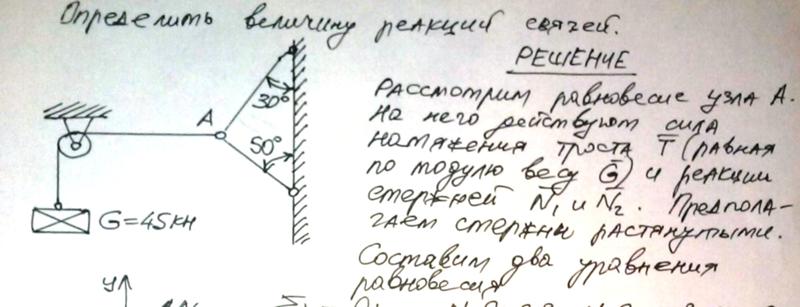 Определить величину реакций связей.
РЕШЕНИЕ
Рассмотрим равновесие узла А.
На него действуют сила
натяжения троса T̅ (равная
по модулю весу G̅) и реакции
стержней N̅₁ и N̅₂. Предпола-
гаем стержни растянутыми.
Составим два уравнения
равновесия
A
30°
50°
G=45кН
y